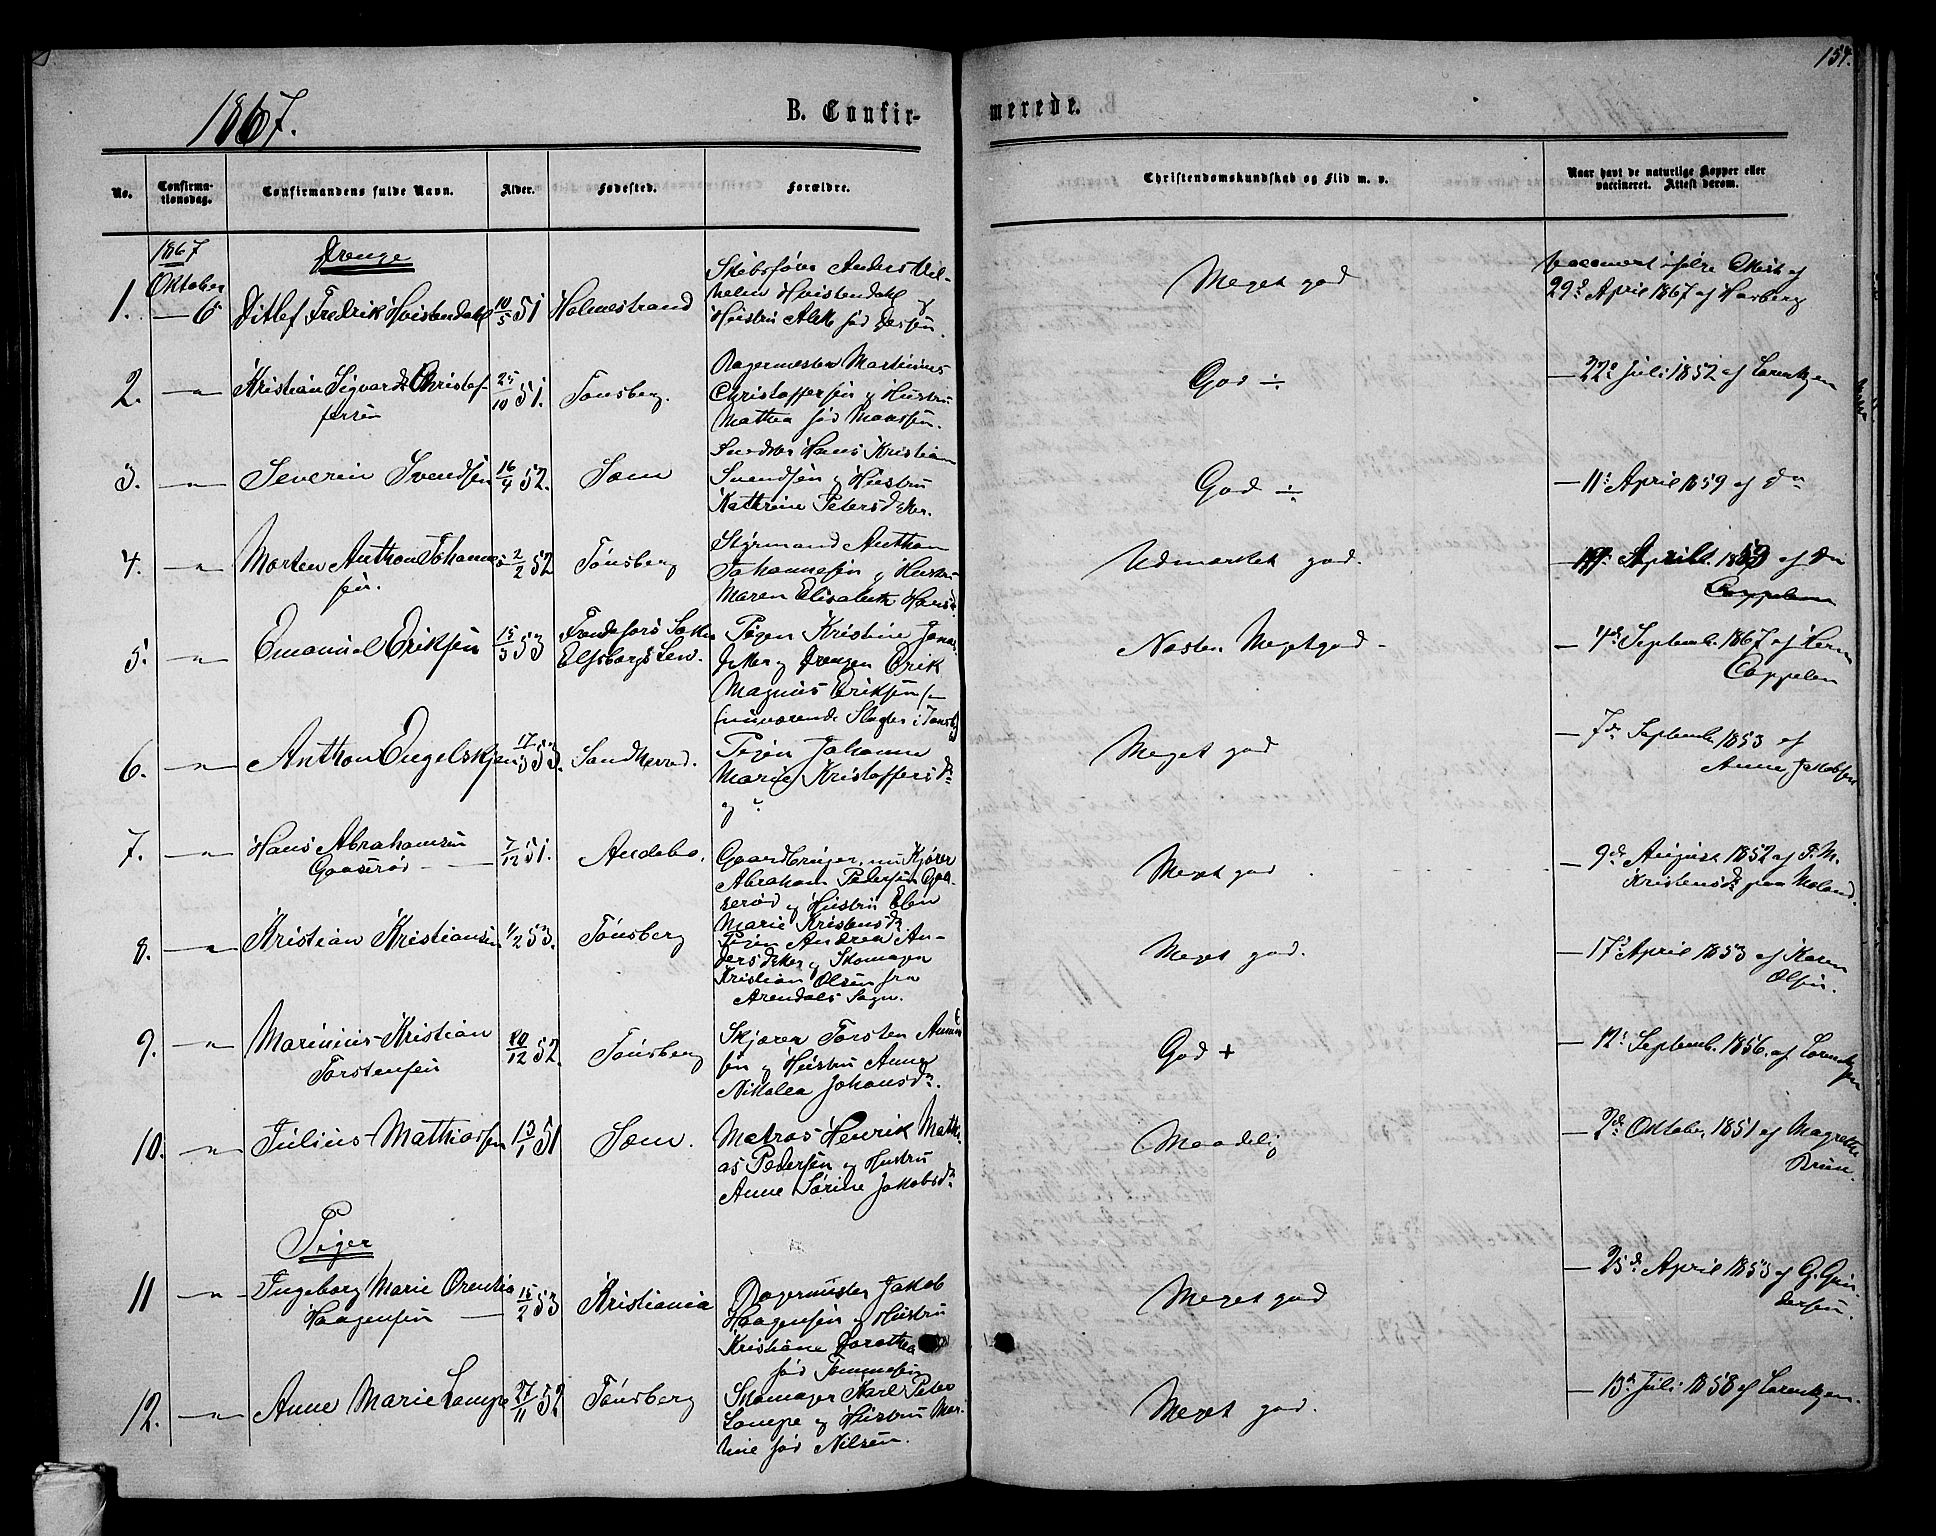 154.
1867.
B. Confir-
merede.
No.
Confirma-
tionsdag.
Confirmandens fulde Navn.
Alder.
Fødested.
Forældre.
Christendomskundskab og Flid m. v.
Naar havt de naturlige Kopper eller
vaccineret. Attest derom.
1867
Oktober
Drenge
1. — 6 Ditlef Fredrik Hvistendahl 10/5 51 Holmestrand
Skibsfører Anders Vil-
helm Hvistendahl og
Hustru født
Meget god
29de April 1867 af
2. — " — Kristian Sigvard Christof-
fersen
25/10 51. Tønsberg.
Martinius
Christoffersen og Hustru
Mathea født Monssen.
God ÷
— 22de Juli 1852 af Lorentzen
3. — " — Severin Svendsen 16/9 52. Sæm
Hans Kristian
Svendsen og Hustru
Kathrine Petersd.
God ÷
— 11te April 1859 af do
4. — " — Morten Anthon Johanne-
sen.
2/2 52 Tønsberg
Styrmand Anthon
Johannesen og Hustru
Maren Elisabeth Hansd.
Udmærket god.
April 1859 af do
Cappelen
5. — " — Emanuel Eriksen 15/3 53
Elfsborgs Len.
Pigen Kristine
og Drengen Erik
Magnus Eriksen (—
(nuværende Slagter i Tønsbg
Næsten Meget god —
— 4de Septemb. 1867 af Herm
Cappelen
6. — " — Anthon Engelskjøn 17/5 53. Sandherred.
Pigen Johanne
Marie Kristoffersdr
og ?
Meget god
— 7de Septemb. 1853 af
Anne Jakobsen
7. — " — Hans Abrahamsen
Gaaserød —
7/12 51. Andebo.
Gaardbruger, nu Kjører
Abraham Pedersen Gaa-
serød og Hustru Elen
Marie Kristensdr.
Meget god
— 9de August 1852 af T. M.
Kristensdr paa Moland.
8. — " — Kristian Kristiansen 4/2 53. Tønsberg
Pigen Andrea An-
dersd. og Skomager
Kristian Olsen fra
Arendals Sogn.
Meget god.
— 17de April 1853 af Karen
Olsen.
9. — " — Marinius Kristian
Torstensen
/12 52. Tønsberg
Torsten
sen og Hustru Anne
Nikolea Johansdr.
God +
— 12te Septemb. 1856. af Lorentz
zen
10. — " — Julius Mathiassen 13/1 51 Sæm.
Matros Henrik Mathi-
as Pedersen og Hustru
Anne Sørine Jakobsdr.
Maadelig
— 2de Oktober 1851 af Magrethe
Bruun.
Piger
11 — " — Ingeborg Marie Orentia
Haagensen —
15/2 53 Kristiania
Jakob
Haagensen og Hustru
Kristiane Dorothea
født Tønnesen
Meget god
— 25de April 1853 af G. Gun-
dersen.
12. — " — Anne Marie Lampe 27/11 52 Tønsberg
Skomager Karl Peter
Lampe og Hustru Mar-
tine født Nilsen.
Meget god.
— 13de Juli 1858 af Lorentzen.